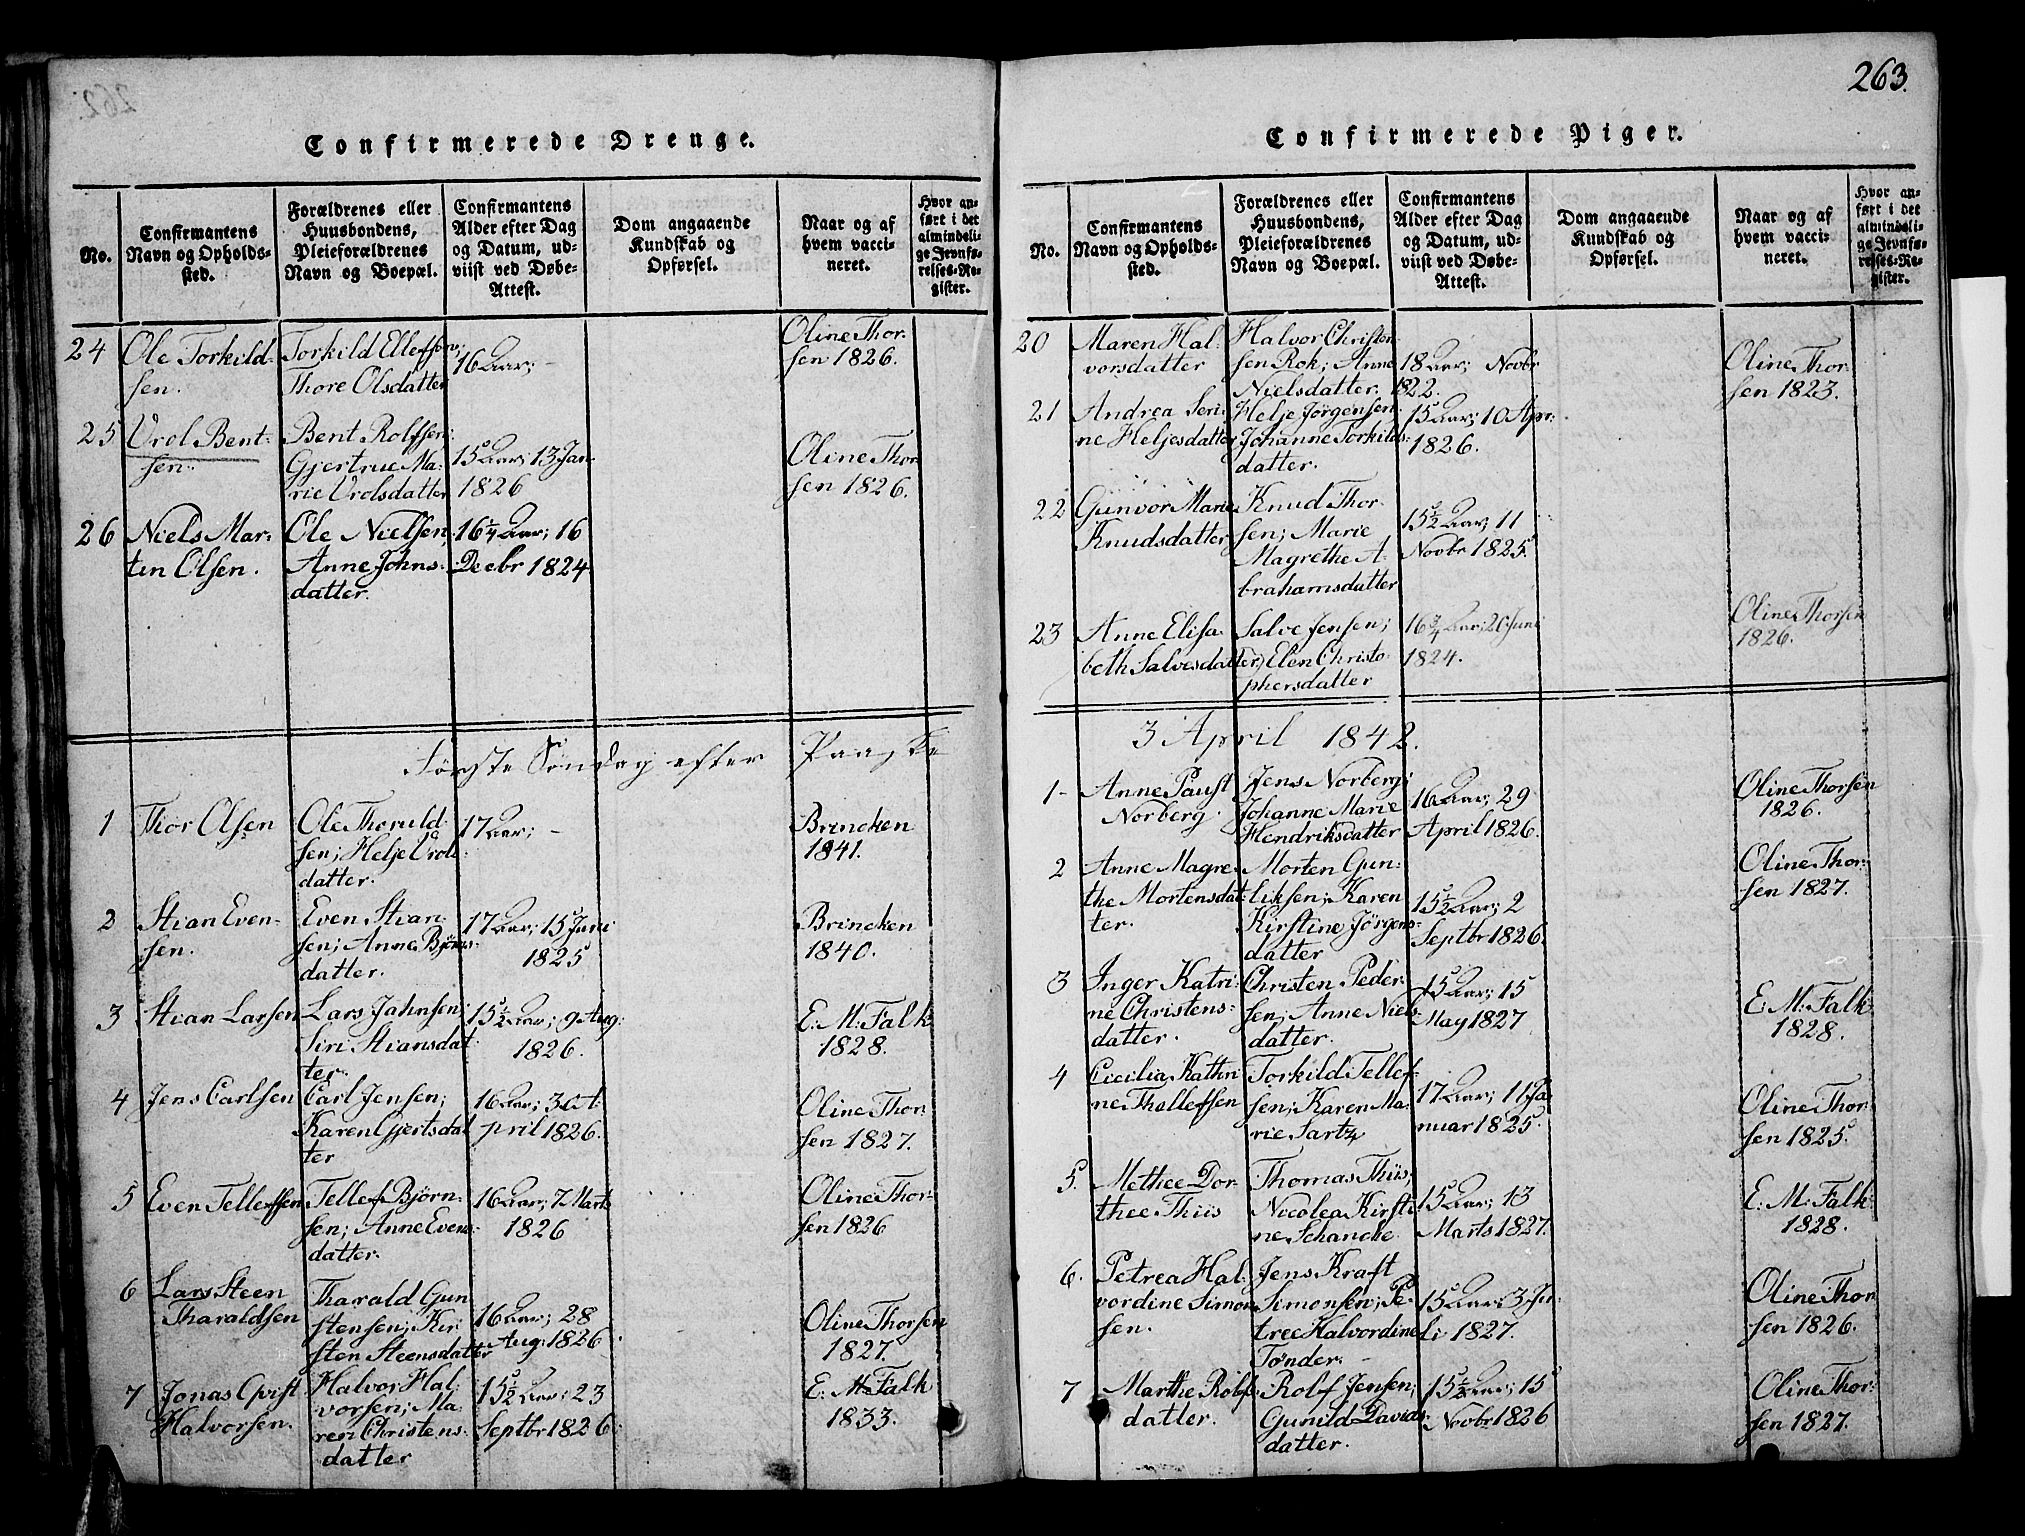 263.
Confirmerede Drenge.
No.
Confirmantens
Navn og Opholds-
sted.
Forældrenes eller
Huusbondens,
Pleieforældrenes
Navn og Boepæl.
Confirmantens
Alder efter Dag
og Datum, ud-
viist ved Døbe-
Attest.
Dom angaaende
Kundskab og
Opførsel.
Naar og af
hvem vacci-
neret.
Hvor an-
ført i det
almindeli-
ge Jevnfø-
relses-Re-
gister.
24
Ole Torkild-
sen.
Torkild Ellefsen;
Thore Olsdatter
16 Aar; -
Oline Thor-
sen 1826.
25
Vrol Bent-
sen.
Bent Rolfsen;
Gjertrue Ma-
rie Vrolsdatter
15 Aar; 13 Jan
1826
Oline Thor-
sen 1826.
26
Niels Mar-
tin Olsen.
Ole Nielsen;
Anne Johns-
datter.
16 1/4 Aar; 16
Decbr 1824
Første Søndag efter Paaske
1
Thor Olsen
Ole Thoruld-
sen; Helje Vrols-
datter.
17 Aar; -
Brincken
1841.
2
Stian Even-
sen.
Even Stian-
sen; Anne Bjørns-
datter.
17 Aar; 15 Juni
1825
Brincken
1840.
3
Stian Larsen
Lars Jahnsen;
Siri Stiansdat-
ter.
15 1/2 Aar; 9 Aug:
1826.
E: M: Falk
1828.
4
Jens Carlsen
Carl Jensen;
Karen Gjertsdat
ter
16 Aar; 30 A-
pril 1826.
Oline Thor-
sen 1827.
5
Even Tellefsen
Tellef Bjørn-
sen; Anne Evens-
datter.
16 Aar; 7 Marts
1826
Oline Thor-
sen 1826
6
Lars Steen
Tharaldsen
Tharald Gun
stensen; Kir-
sten Steensdatter
16 Aar; 28
Aug: 1826.
Oline Thorsen
1827.
7
Jonas Qvist
Halvorsen.
Halvor Hal-
vorsen; Ma-
ren Christens-
datter
15 1/2 Aar; 23
Septbr 1826
E: M: Falk
1833.
Confirmerede Piger.
No.
Confirmantens
Navn og Opholds-
sted.
Forældrenes eller
Huusbondens,
Pleieforældrenes
Navn og Boepæl.
Confirmantens
Alder efter Dag
og Datum, ud-
viist ved Døbe-
Attest.
Dom angaaende
Kundskab og
Opførsel.
Naar og af
hvem vacci-
neret.
Hvor an-
ført i det
almindeli-
ge Jevnfø-
relses-Re-
gister.
20
Maren Hal-
vorsdatter
Halvor Christen-
sen Rok; Anne
Nielsdatter.
18 Aar; Novbr
1822.
Oline Thor-
sen 1823.
21
Andrea Seri-
ne Heljesdatter
Helje Jörgensen;
Johanne Torkilds-
datter.
15 Aar; 10 Apr:
1826.
22
Gunvor Marie
Knudsdatter
Knud Thor-
sen; Marie
Magrethe A-
brahamsdatter
15 1/2 Aar; 11
Novbr 1825.
23
Anne Elisa-
beth Salvesdatter
Salve Jensen;
Elen Christo-
phersdatter
16 3/4 Aar; 20 Juni
1824.
Oline Thorsen
1826.
3 April 1842.
1-
Anne Paust
Norberg.
Jens Norberg;
Johanne Marie
Hendriksdatter
16 Aar; 29
April 1826.
Oline Thorsen
1826.
2
Anne Magre-
the Mortensdat-
ter.
Morten Gun-
liksen; Karen
Kirstine Jörgens-
datter
15 1/2 Aar; 2
Septbr 1826.
Oline Thor-
sen 1827.
3
Inger Katri-
ne Christens-
datter.
Christen Peder-
sen; Anne Niels-
datter.
15 Aar; 15
May 1827
E: M: Falk
1828.
4
Cicilia Kathri
ne Thallefsen
Torkild Tellef-
sen; Karen Ma-
rie Sartz
17 Aar; 11 Ja-
nuar 1825.
Oline Thor-
sen 1825.
5.
Methee Dor-
thee Thiis
Thomas Thiis;
Nicolea Kirsti-
ne Schancke
15 Aar; 13
Marts 1827.
E: M: Falk
1828.
6.
Petrea Hal-
vordine Simon-
sen.
Jens Kraft
Simonsen; Pe-
tree Halvordine
Tønder. -
15 Aar; 3 Ju-
li 1827.
Oline Thor
sen 1826.
7
Marthe Rolfs-
datter.
Rolf Jensen;
Gunild Davids-
datter.
15 1/2 Aar; 15
Novbr 1826
Oline Thor-
sen 1827.